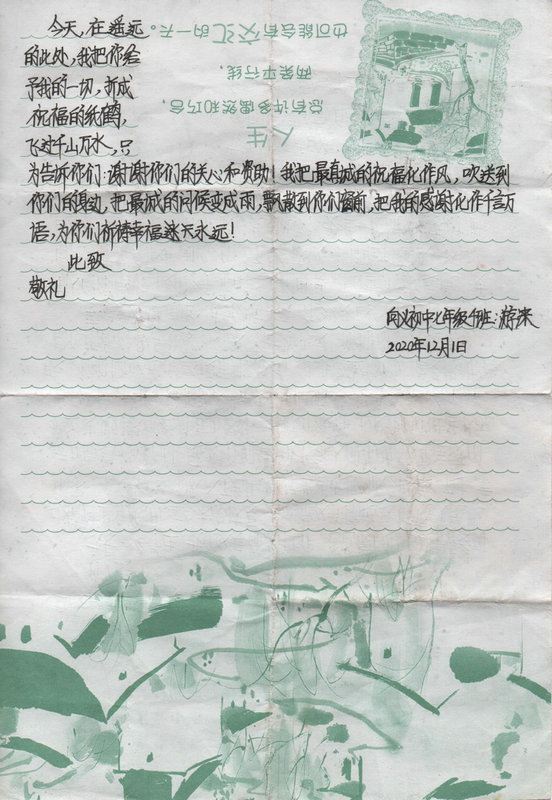 人生
总有许多偶然和巧合，
两条平行线，
也可能会有交汇的一天。
今天，在遥远
的此处，我把你给
予我的一切，折成
祝福的纸鹤，
飞过千山万水，只
为告诉你们：谢谢你们的关心和资助！我把最真诚的祝福化作风，吹送到
你们的身边，把最诚的问候变成雨，飘散到你们窗前，把我的感谢化作千言万
语，为你们祈祷幸福永远！
此致
敬礼
初中七年级班：
2020年12月1日